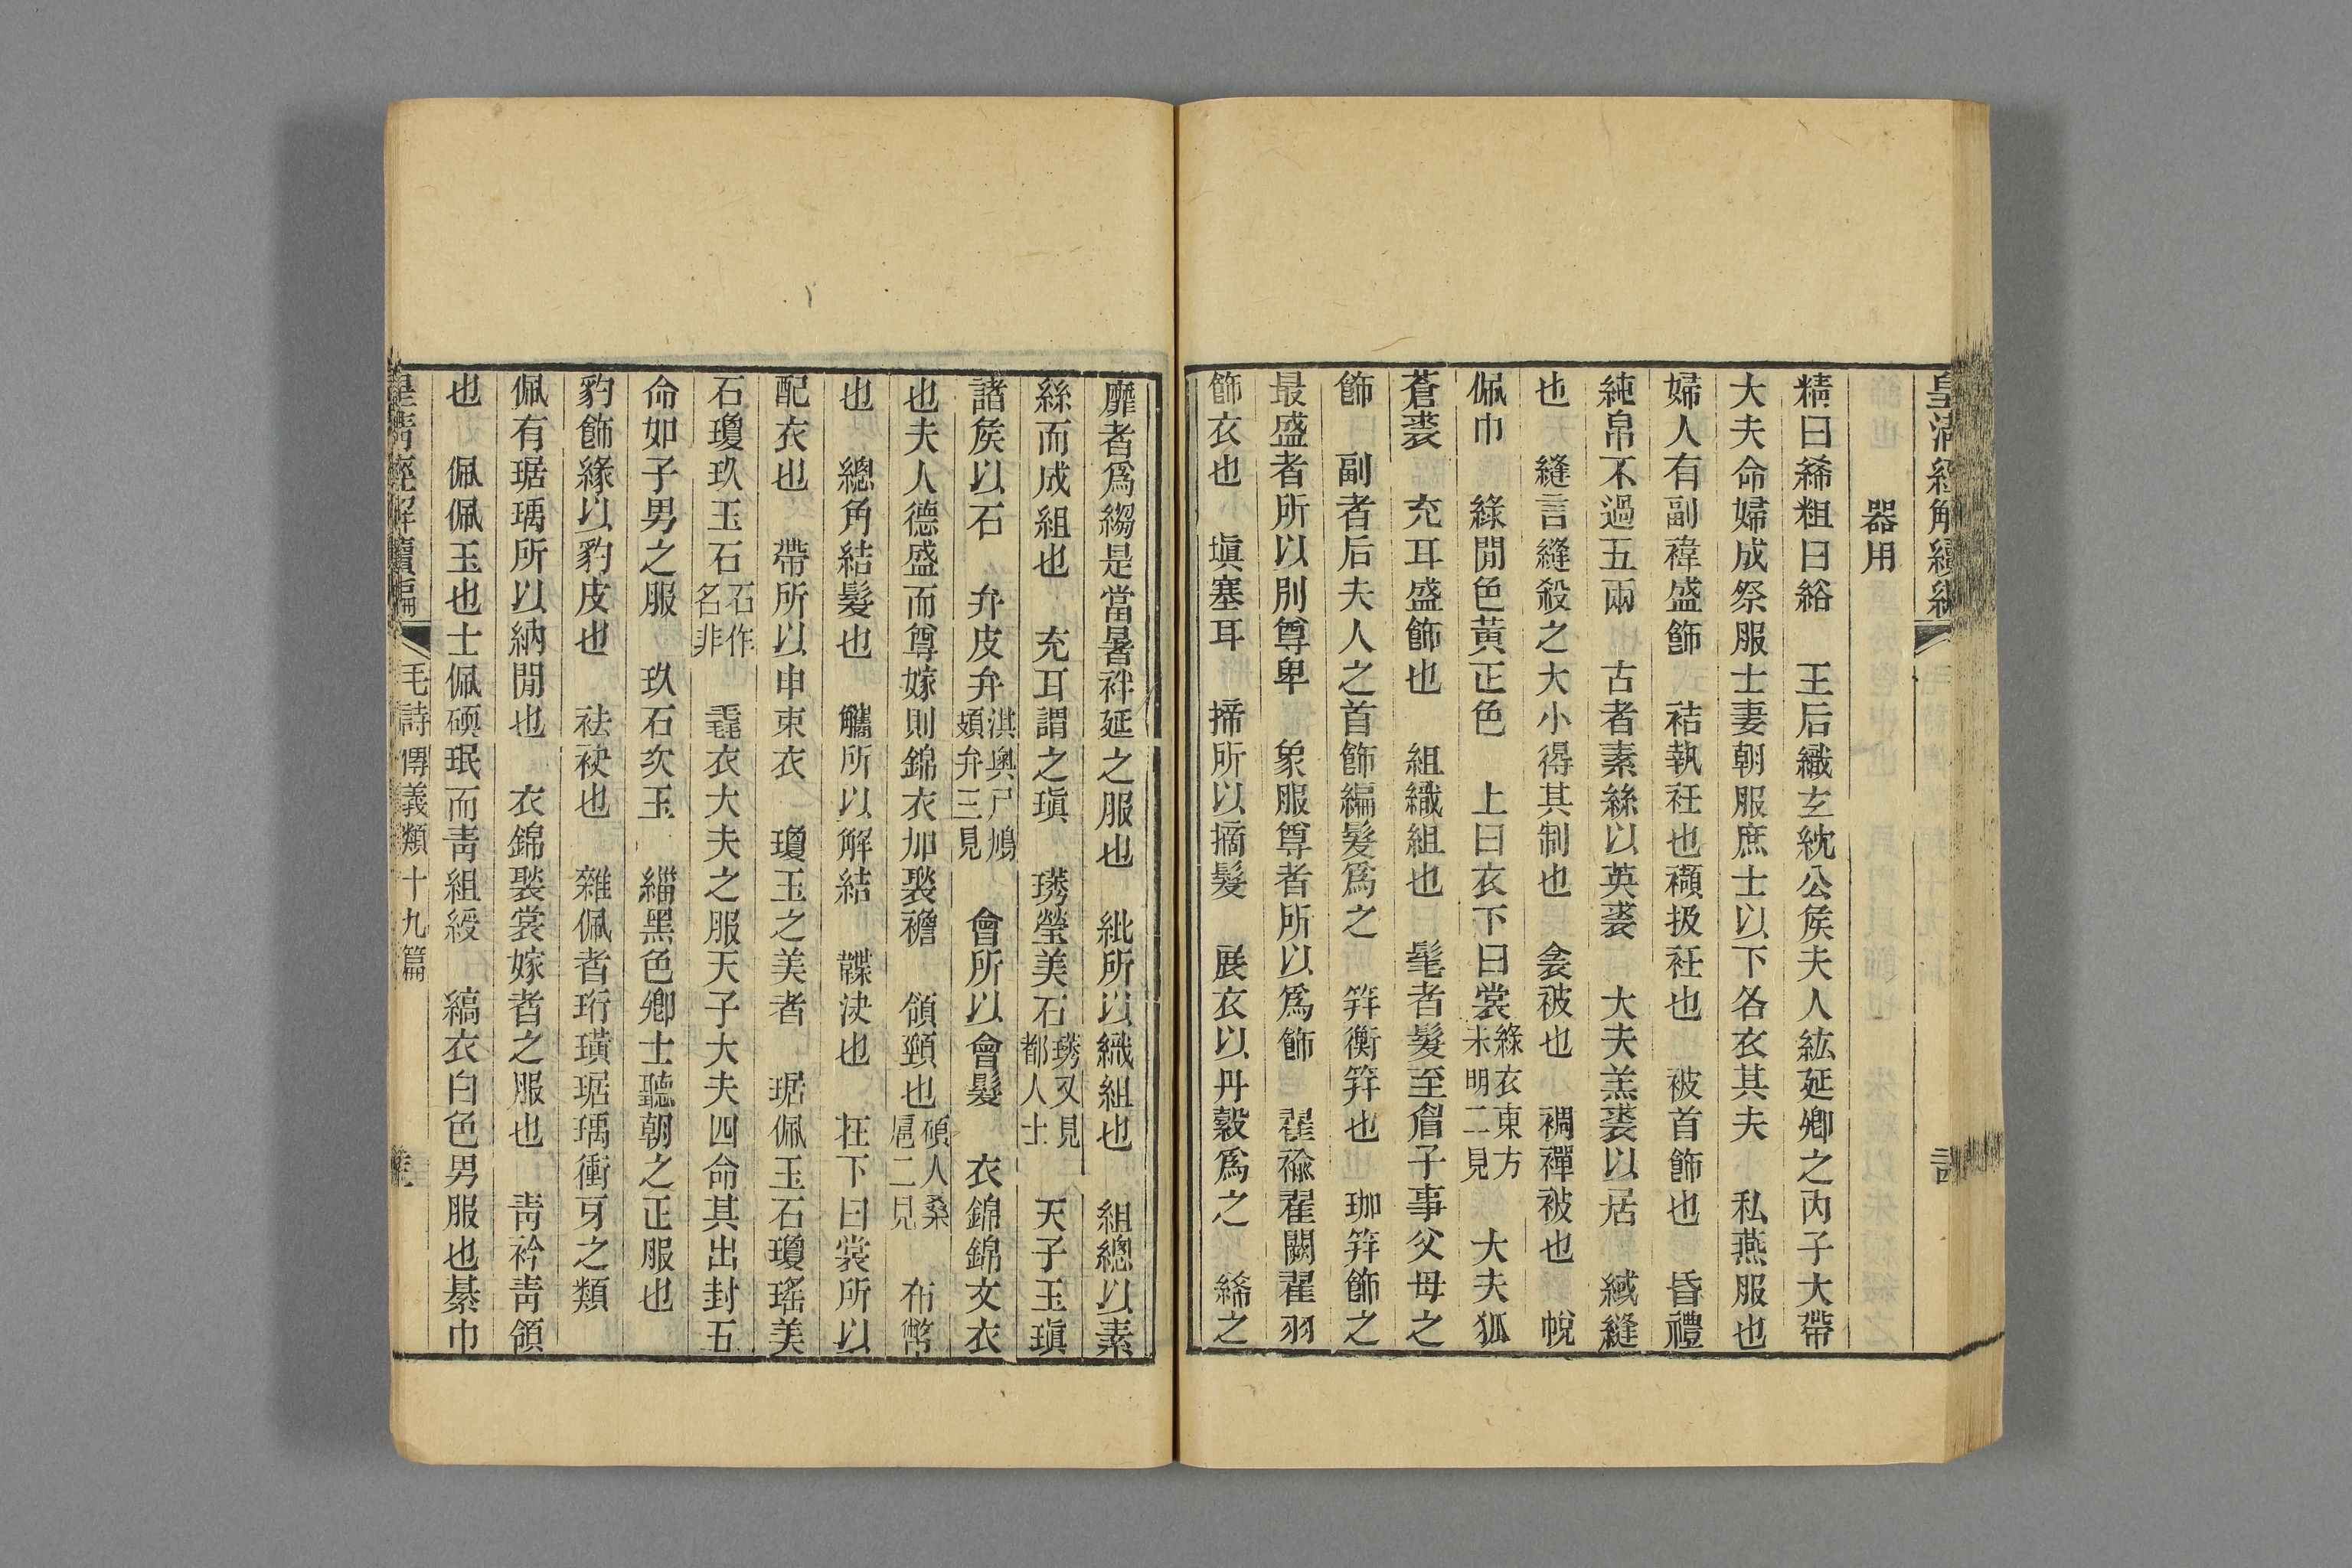 皇清經解續編
器用
精曰絺粗曰綌　王后織玄紞公侯夫人紘綖卿之內子大帶
大夫命婦成祭服士妻朝服庶士以下各衣其夫　私燕服也
婦人有副褘盛飾　袺執衽也襭扱衽也　被首飾也　昏禮
純帛不過五兩　古者素絲以英裘　大夫羔裘以居　緎縫
也　縫言縫殺之大小得其制也　衾被也　裯襌被也　帨
佩巾　綠閒色黃正色　上曰衣下曰裳綠衣東方未明二見　大夫狐
蒼裘　充耳盛飾也　組織組也　髦者髮至眉子事父母之
飾　副者后夫人之首飾編髮爲之　筓衡筓也　珈筓飾之
最盛者所以別尊卑　象服尊者所以爲飾　翟褕翟闕翟羽
飾衣也　塡塞耳　揥所以摘髮　展衣以丹縠爲之　絺之
靡者爲縐是當暑袢延之服也　紕所以織組也　組總以素
絲而成組也　充耳謂之瑱　琇瑩美石琇又見都人士　天子玉瑱
諸侯以石　弁皮弁淇奧尸鳩頍弁三見　會所以會髮　衣錦錦文衣
也夫人德盛而尊嫁則錦衣加褧襜　領頸也碩人桑扈二見　布幣
也　總角結髮也　觿所以解結　韘決也　在下曰裳所以
配衣也　帶所以申束衣　瓊玉之美者　琚佩玉石瓊瑤美
石瓊玖玉石石作名非　毳衣大夫之服天子大夫四命其出封五
命如子男之服　玖石次玉　緇黑色卿士聽朝之正服也
豹飾緣以豹皮也　袪袂也　雜佩者珩璜琚瑀衝牙之類
佩有琚瑀所以納閒也　衣錦褧裳嫁者之服也　靑衿靑領
也　佩佩玉也士佩瓀珉而靑組綬　縞衣白色男服也綦巾
皇淸經解續編　毛詩傳義類十九篇